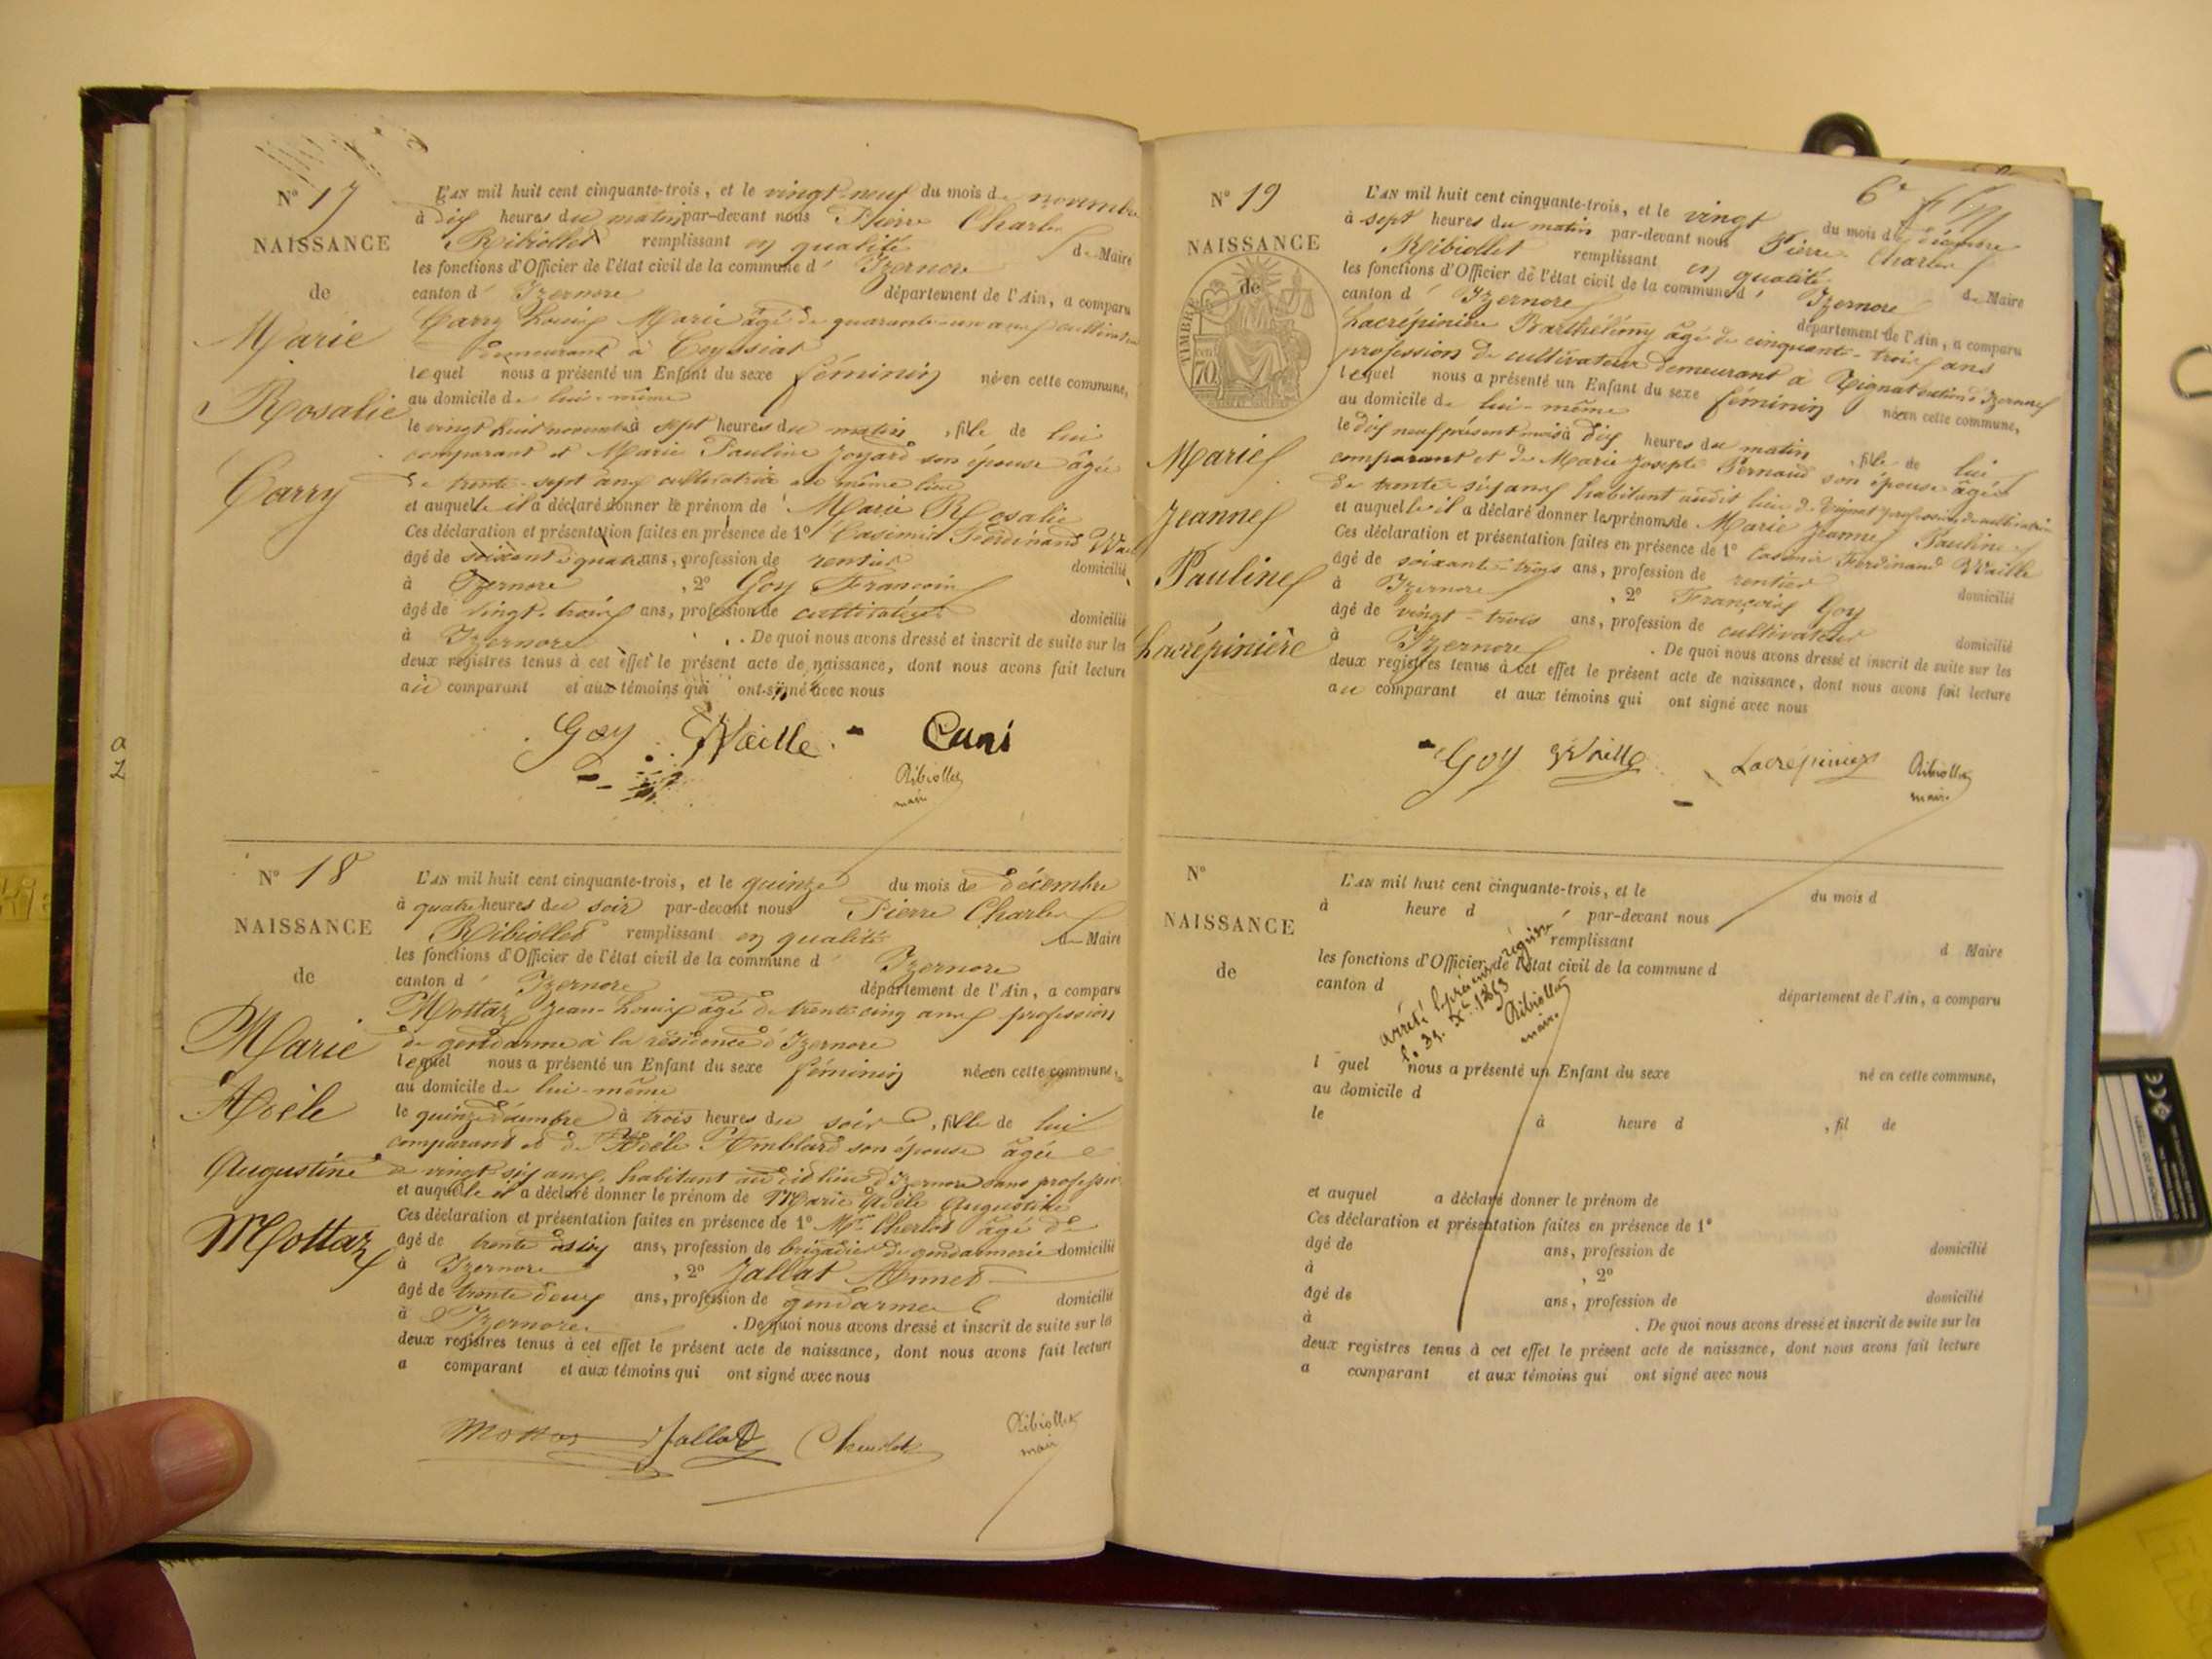 N° 17
NAISSANCE
de
Marie
Rosalie
Carry
L'AN mil huit cent cinquante-trois, et le vingt neuf du mois de novembre
à dix heures du matin par-devant nous Pierre Charles
Ribiollet remplissant en qualité de Maire
les fonctions d'Officier de l'état civil de la commune d' Izernore
canton d' Izernore département de l'Ain, a comparu
Carry Louis Marie âgé de quarante-un ans cultivateur
demeurant à Ceyssiat
lequel nous a présenté un Enfant du sexe féminin né en cette commune,
au domicile de lui-même
le vingt huit novembre à sept heures du matin, fille de lui
comparant et Marie Pauline Joyard son épouse âgée
de trente-sept ans cultivatrice au même lieu
et auquelle il a déclaré donner le prénom de Marie Rosalie
Ces déclaration et présentation faites en présence de 1° Casimir Ferdinand Waille
âgé de soixante quatre ans, profession de rentier domicilié
à Izernore, 2° Goy François
âgé de vingt-trois ans, profession de cultivateur domicilié
à Izernore. De quoi nous avons dressé et inscrit de suite sur les
deux registres tenus à cet effet le présent acte de naissance, dont nous avons fait lecture
au comparant et aux témoins qui ont signé avec nous
Goy Waille Cani
Ribiollet
maire
N° 18
NAISSANCE
de
Marie
Adèle
Augustine
Mottaz
L'AN mil huit cent cinquante-trois, et le quinze du mois de décembre
à quatre heures du soir par-devant nous Pierre Charles
Ribiollet remplissant en qualité de Maire
les fonctions d'Officier de l'état civil de la commune d' Izernore
canton d' Izernore département de l'Ain, a comparu
Mottaz Jean-Louis âgé de trente cinq ans profession
de gendarme à la résidence d'Izernore
lequel nous a présenté un Enfant du sexe féminin née en cette commune,
au domicile de lui-même
le quinze décembre à trois heures du soir, fille de lui
comparant et de Adèle Amblard son épouse âgée
de vingt-six ans, habitant au dit lieu d'Izernore sans profession
et auquelle il a déclaré donner le prénom de Marie Adèle Augustine
Ces déclaration et présentation faites en présence de 1° Mr Cherlot âgé de
âgé de trente six ans, profession de brigadier de gendarmerie domicilié
à Izernore, 2° Jallat Annet
âgé de trente deux ans, profession de gendarme domicilié
à Izernore. De quoi nous avons dressé et inscrit de suite sur les
deux registres tenus à cet effet le présent acte de naissance, dont nous avons fait lecture
a comparant et aux témoins qui ont signé avec nous
Mottaz Jallat
Ribiollet
maire
6e
N° 19
NAISSANCE
de
TIMBRE
70
Marie
Jeanne
Pauline
Lacrépinière
L'AN mil huit cent cinquante-trois, et le vingt du mois de décembre
à sept heures du matin par-devant nous Pierre Charles
Ribiollet remplissant en qualité de Maire
les fonctions d'Officier de l'état civil de la commune d' Izernore
canton d' Izernore département de l'Ain, a comparu
Lacrépinière Barthélemy âgé de cinquante-trois ans
profession de cultivateur demeurant à Tignat section d'Izernore
lequel nous a présenté un Enfant du sexe féminin née en cette commune,
au domicile de lui-même
le dix neuf présent mois à dix heures du matin, fille de lui
comparant et de Marie Josepte Pernaud son épouse âgée
de trente-six ans habitant audit lieu de Tignat profession de cultivatrice
et auquelle il a déclaré donner les prénoms de Marie Jeanne Pauline
Ces déclaration et présentation faites en présence de 1° Casimir Ferdinand Waille
âgé de soixante-trois ans, profession de rentier domicilié
à Izernore, 2° François Goy
âgé de vingt-trois ans, profession de cultivateur domicilié
à Izernore. De quoi nous avons dressé et inscrit de suite sur les
deux registres tenus à cet effet le présent acte de naissance, dont nous avons fait lecture
au comparant et aux témoins qui ont signé avec nous
Goy Waille Lacrépinière Ribiollet
maire
N°
NAISSANCE
de
L'AN mil huit cent cinquante-trois, et le du mois d
à heure d par-devant nous
remplissant d Maire
les fonctions d'Officier de l'état civil de la commune d
canton d département de l'Ain, a comparu
arrêté le présent registre
le 31 Xbre 1853
Ribiollet
maire
l quel nous a présenté un Enfant du sexe né en cette commune,
au domicile d
le à heure d, fil de
et auquel a déclaré donner le prénom de
Ces déclaration et présentation faites en présence de 1°
âgé de ans, profession de domicilié
à, 2°
âgé de ans, profession de domicilié
à. De quoi nous avons dressé et inscrit de suite sur les
deux registres tenus à cet effet le présent acte de naissance, dont nous avons fait lecture
a comparant et aux témoins qui ont signé avec nous